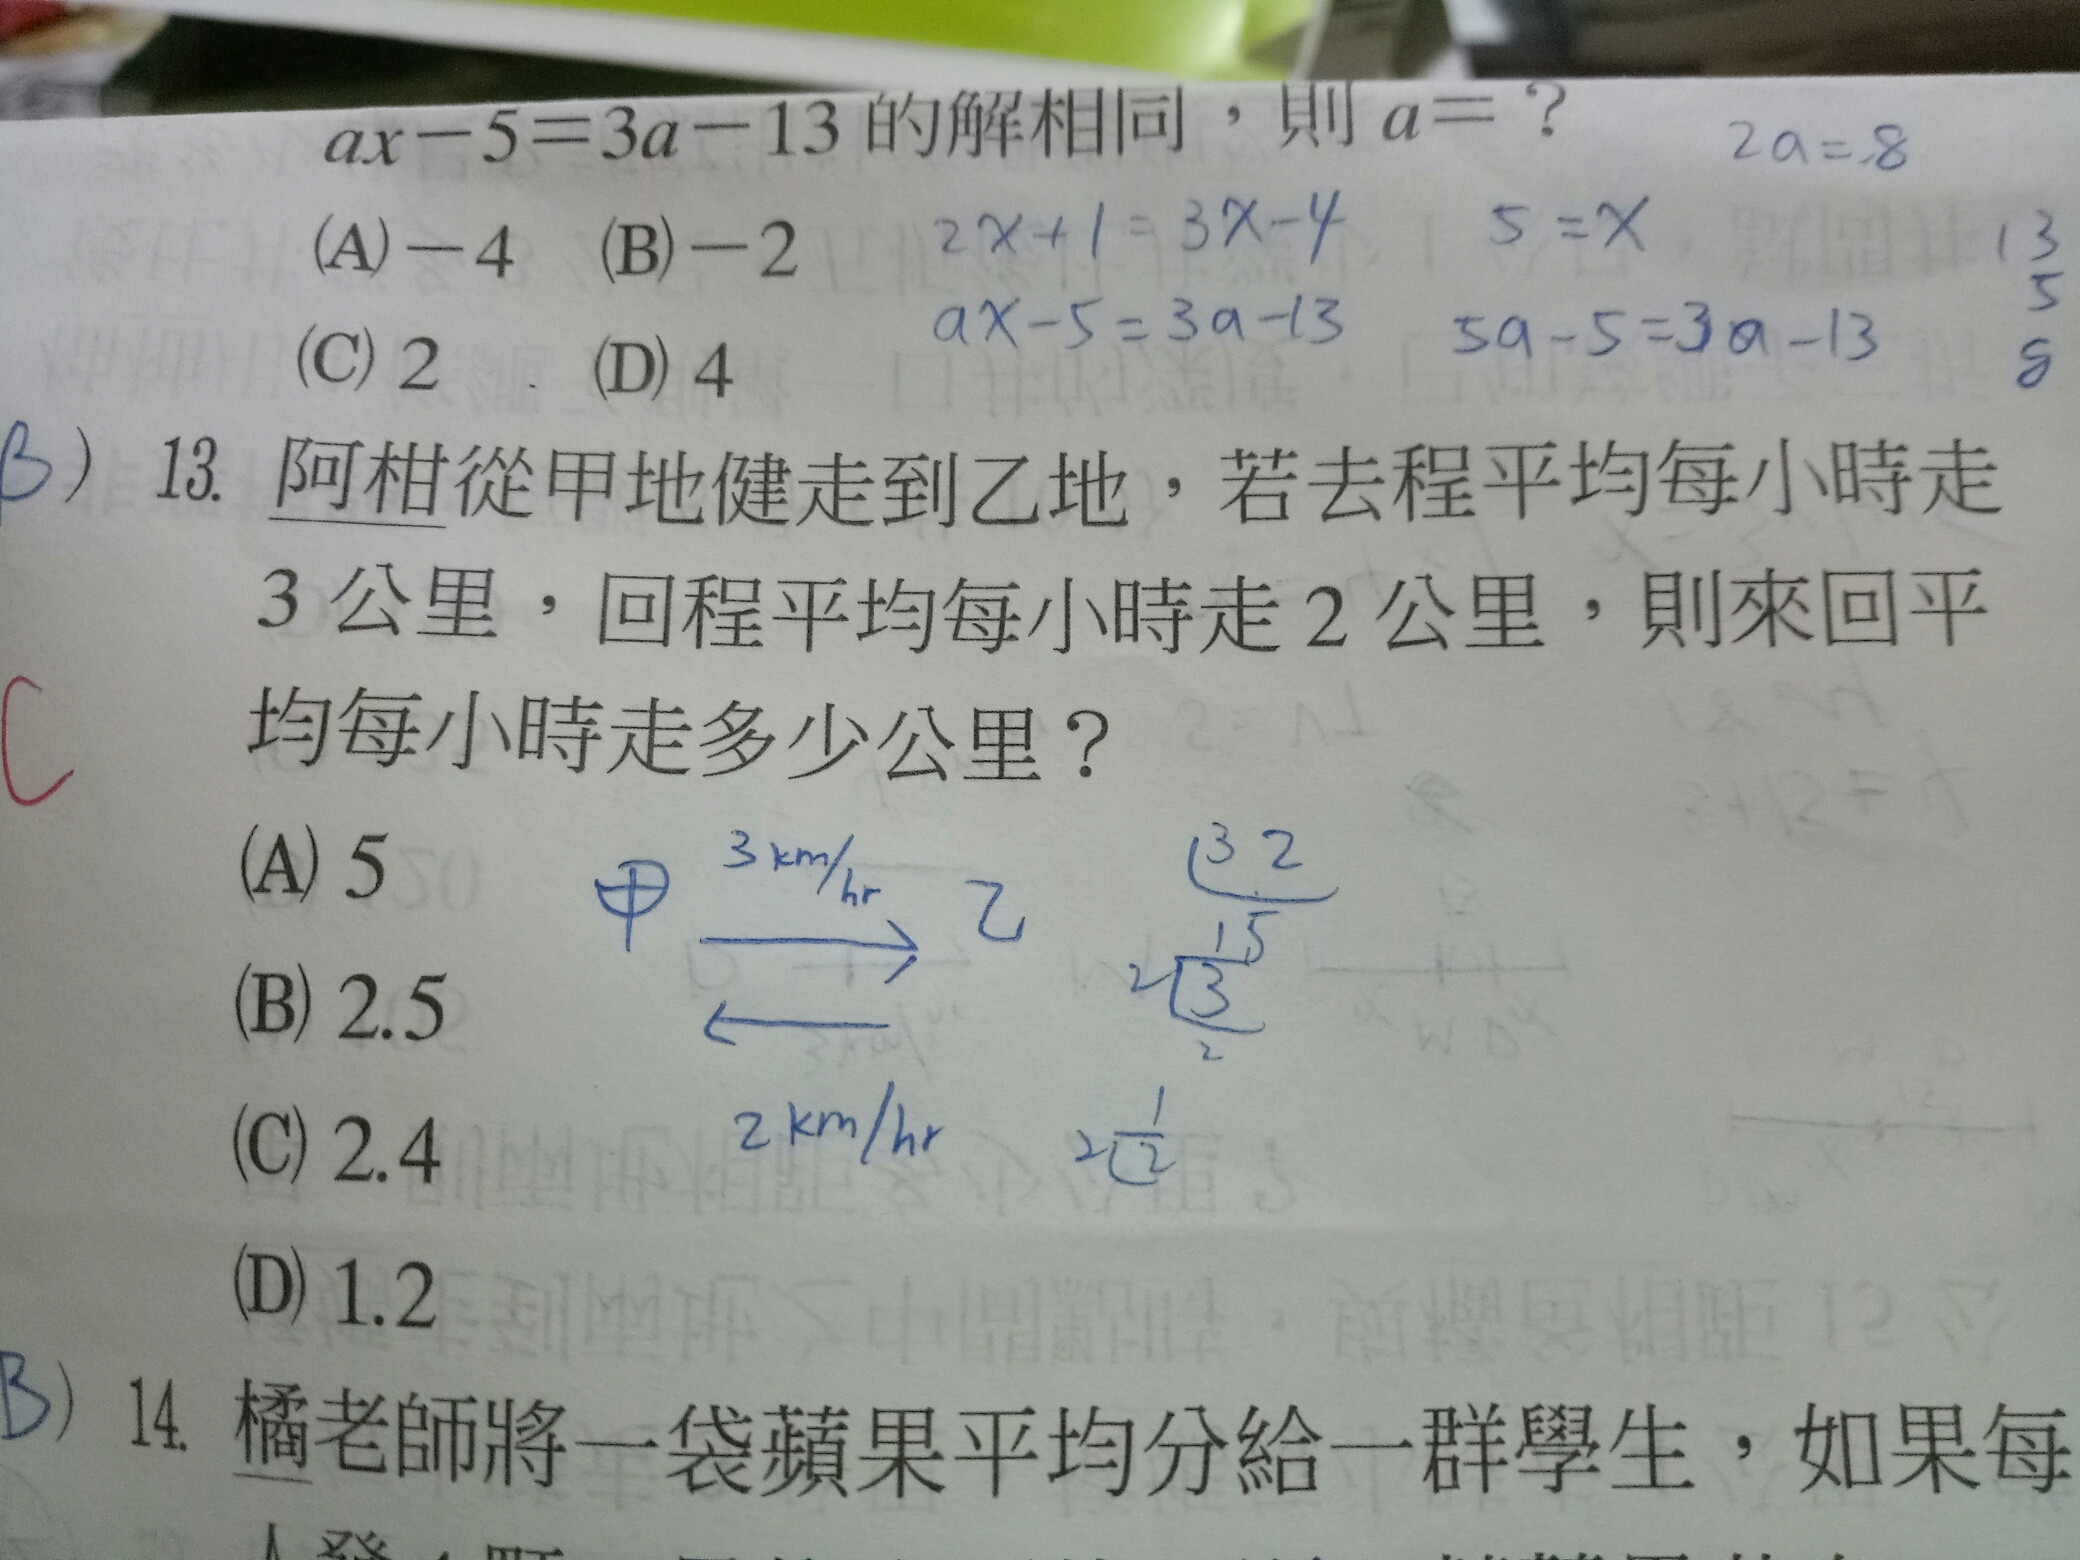 ax－5＝3a－13 的解相同，則 a＝？ 2a=8
(A)－4 (B)－2 2x+1=3x-4 5=x 13
ax-5=3a-13 5a-5=3a-13 5
(C) 2 (D) 4 8
B) 13. 阿柑從甲地健走到乙地，若去程平均每小時走
3 公里，回程平均每小時走 2 公里，則來回平
C 均每小時走多少公里？
(A) 5 甲 3km/hr 乙 3 2
15
(B) 2.5 2 3
2
(C) 2.4 2km/hr 1
2 2
(D) 1.2
B) 14. 橘老師將一袋蘋果平均分給一群學生，如果每